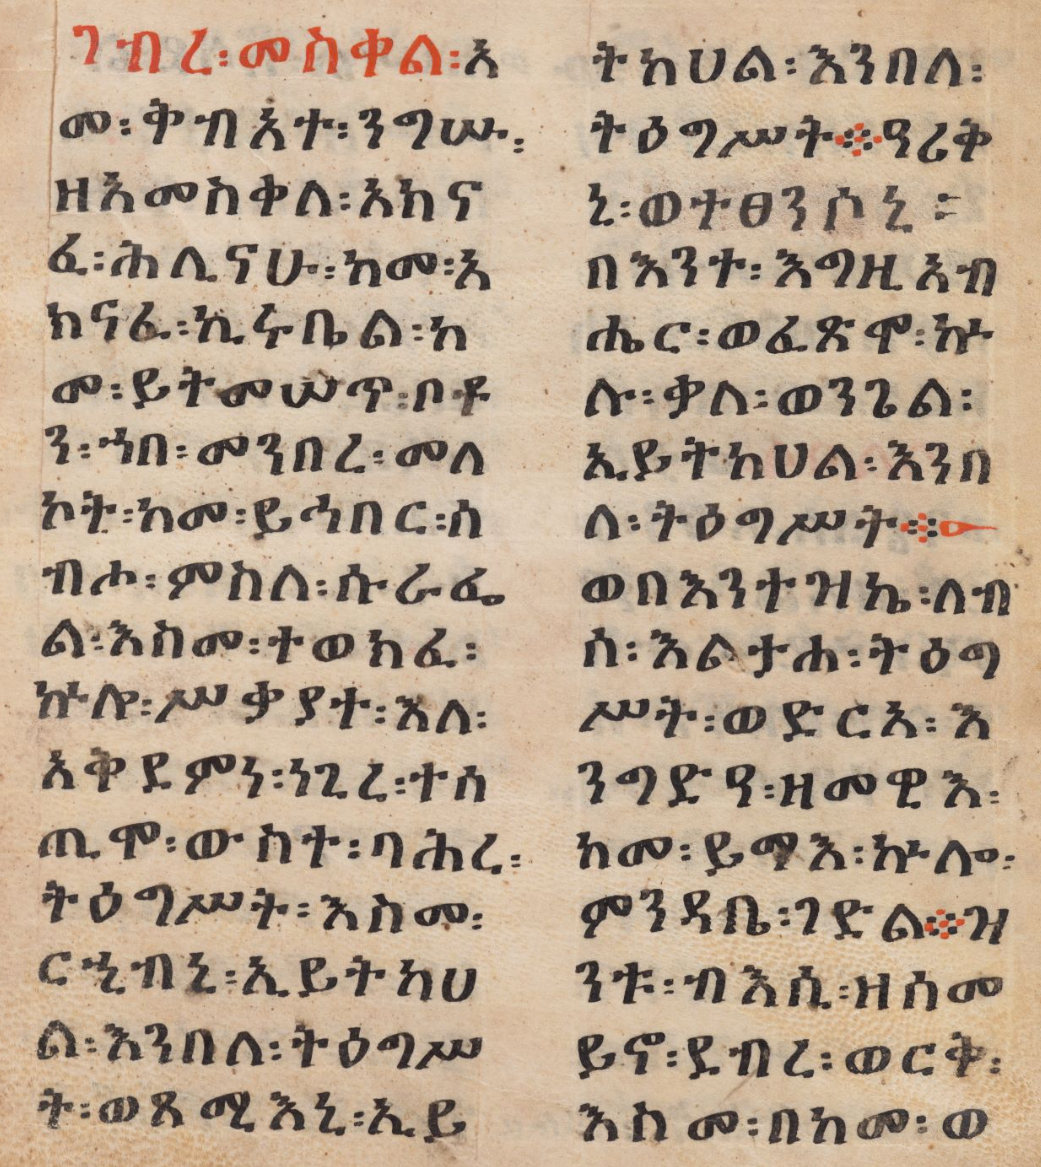 ገብረ፡መስቀል፡አ
መ፡ቅብአተ፡ንግሡ፡
ዘአመስቀለ፡አክና
ፈ፡ሕሊናሁ፡ከመ፡አ
ክናፈ፡ኪሩቤል፡ከ
መ፡ይትመሠጥ፡ቦቶ
ን፡ኀበ፡መንበረ፡መለ
ኮት፡ከመ፡ይኅበር፡ሰ
ብሖ፡ምስለ፡ሱራፌ
ል፡እስመ፡ተወክፈ፡
ኵሎ፡ሥቃያተ፡እለ፡
አቅደምነ፡ነጊረ፡ተሰ
ጢሞ፡ውስተ፡ባሕረ፡
ትዕግሥት፡እስመ፡
ርኂብኒ፡ኢይትከሀ
ል፡እንበለ፡ትዕግሥ
ት፡ወጸሚእኒ፡ኢይ
ትከሀል፡እንበለ፡
ትዕግሥት፨ዓሪቅ
ኒ፡ወተፀንሶኒ፡
በእንተ፡እግዚአብ
ሔር፡ወፈጽሞ፡ኵ
ሉ፡ቃለ፡ወንጌል፡
ኢይትከሀል፡እንበ
ለ፡ትዕግሥት፨
ወበእንተዝኬ፡ለብ
ሰ፡እልታሐ፡ትዕግ
ሥት፡ወድርአ፡እ
ንግድዓ፡ዘመዊእ፡
ከመ፡ይማእ፡ኵሎ፡
ምንዳቤ፡ገድል፨ዝ
ንቱ፡ብእሲ፡ዘሰመ
ይኖ፡ደብረ፡ወርቅ፡
እስመ፡በከመ፡ወ